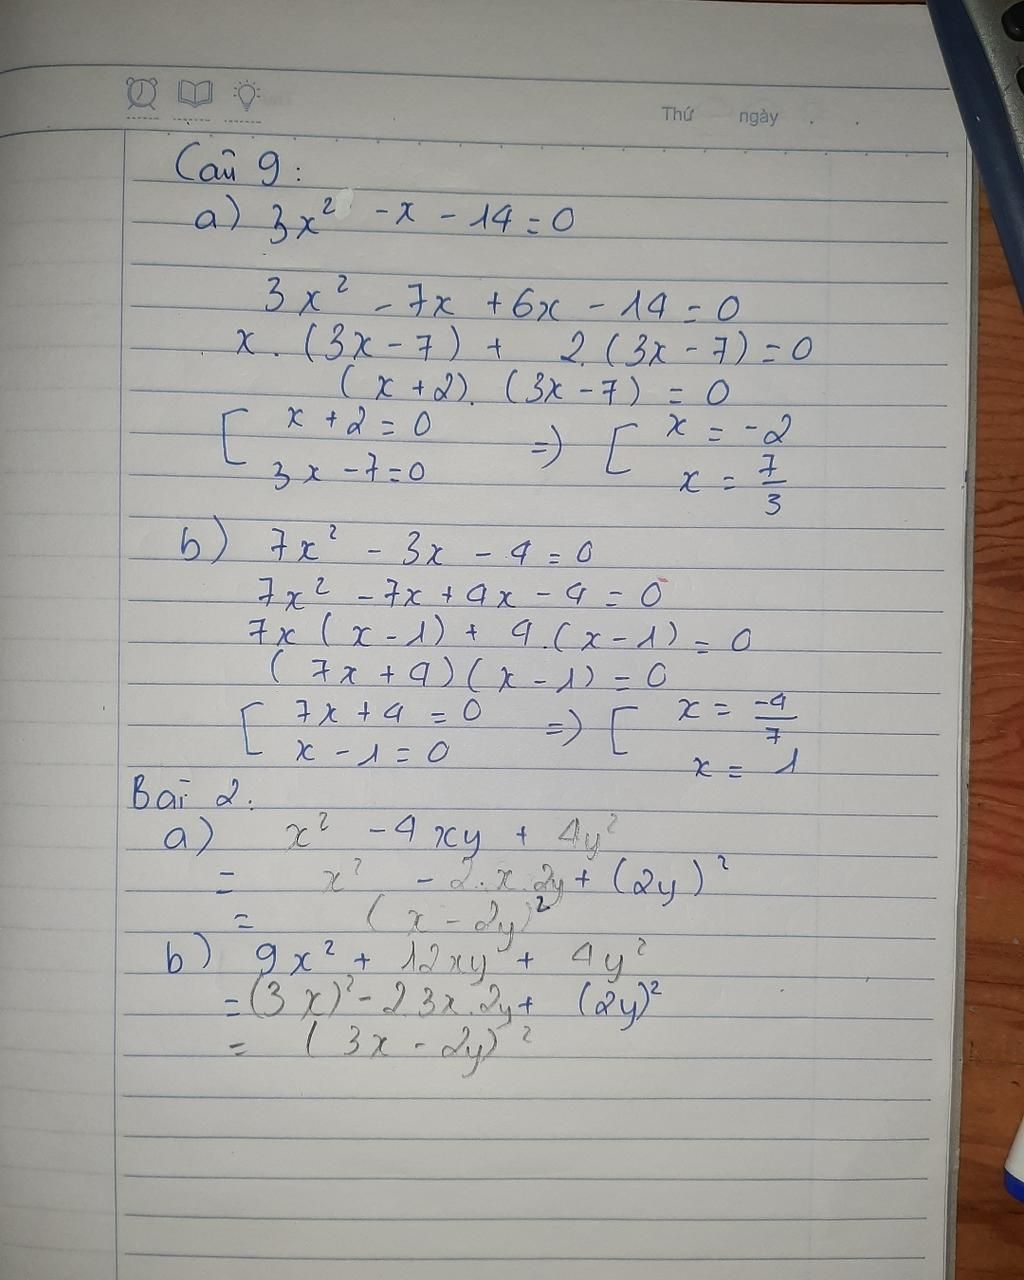 Thứ ngày
Câu 9:
a) 3x² - x - 14 = 0
3x² - 7x + 6x - 14 = 0
x . (3x - 7) + 2. (3x - 7) = 0
(x + 2). (3x - 7) = 0
[ x + 2 = 0 => [ x = -2
3x - 7 = 0 x = 7/3
b) 7x² - 3x - 4 = 0
7x² - 7x + 4x - 4 = 0
7x (x - 1) + 4.(x - 1) = 0
(7x + 4)(x - 1) = 0
[ 7x + 4 = 0 => [ x = -4/7
x - 1 = 0 x = 1
Bài 2.
a) x² - 4xy + 4y²
= x² - 2.x.2y + (2y)²
= (x - 2y)²
b) 9x² + 12xy + 4y²
= (3x)² - 2.3x.2y + (2y)²
= (3x - 2y)²